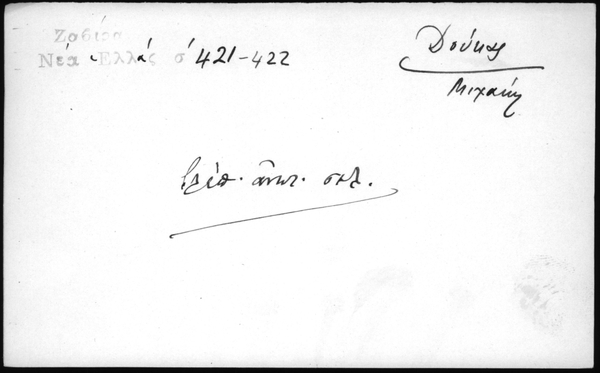 Ζαβίρα
Νέα Ἑλλάς σ 421-422
Δούκας
Μιχαήλ
βλέπ. ἄνωτ. σελ.